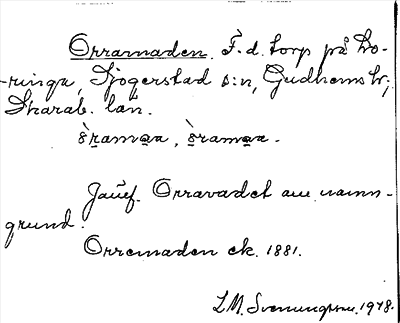 Orramaden. F. d. torp på Lo-
-ringa, Sjogerstad s:n, Gudhems hr,
Skarab. län.
Jämf. Orravadet au. namn-
grund.
Orremaden ek. 1881.
L.M. Svenungsson. 1978.